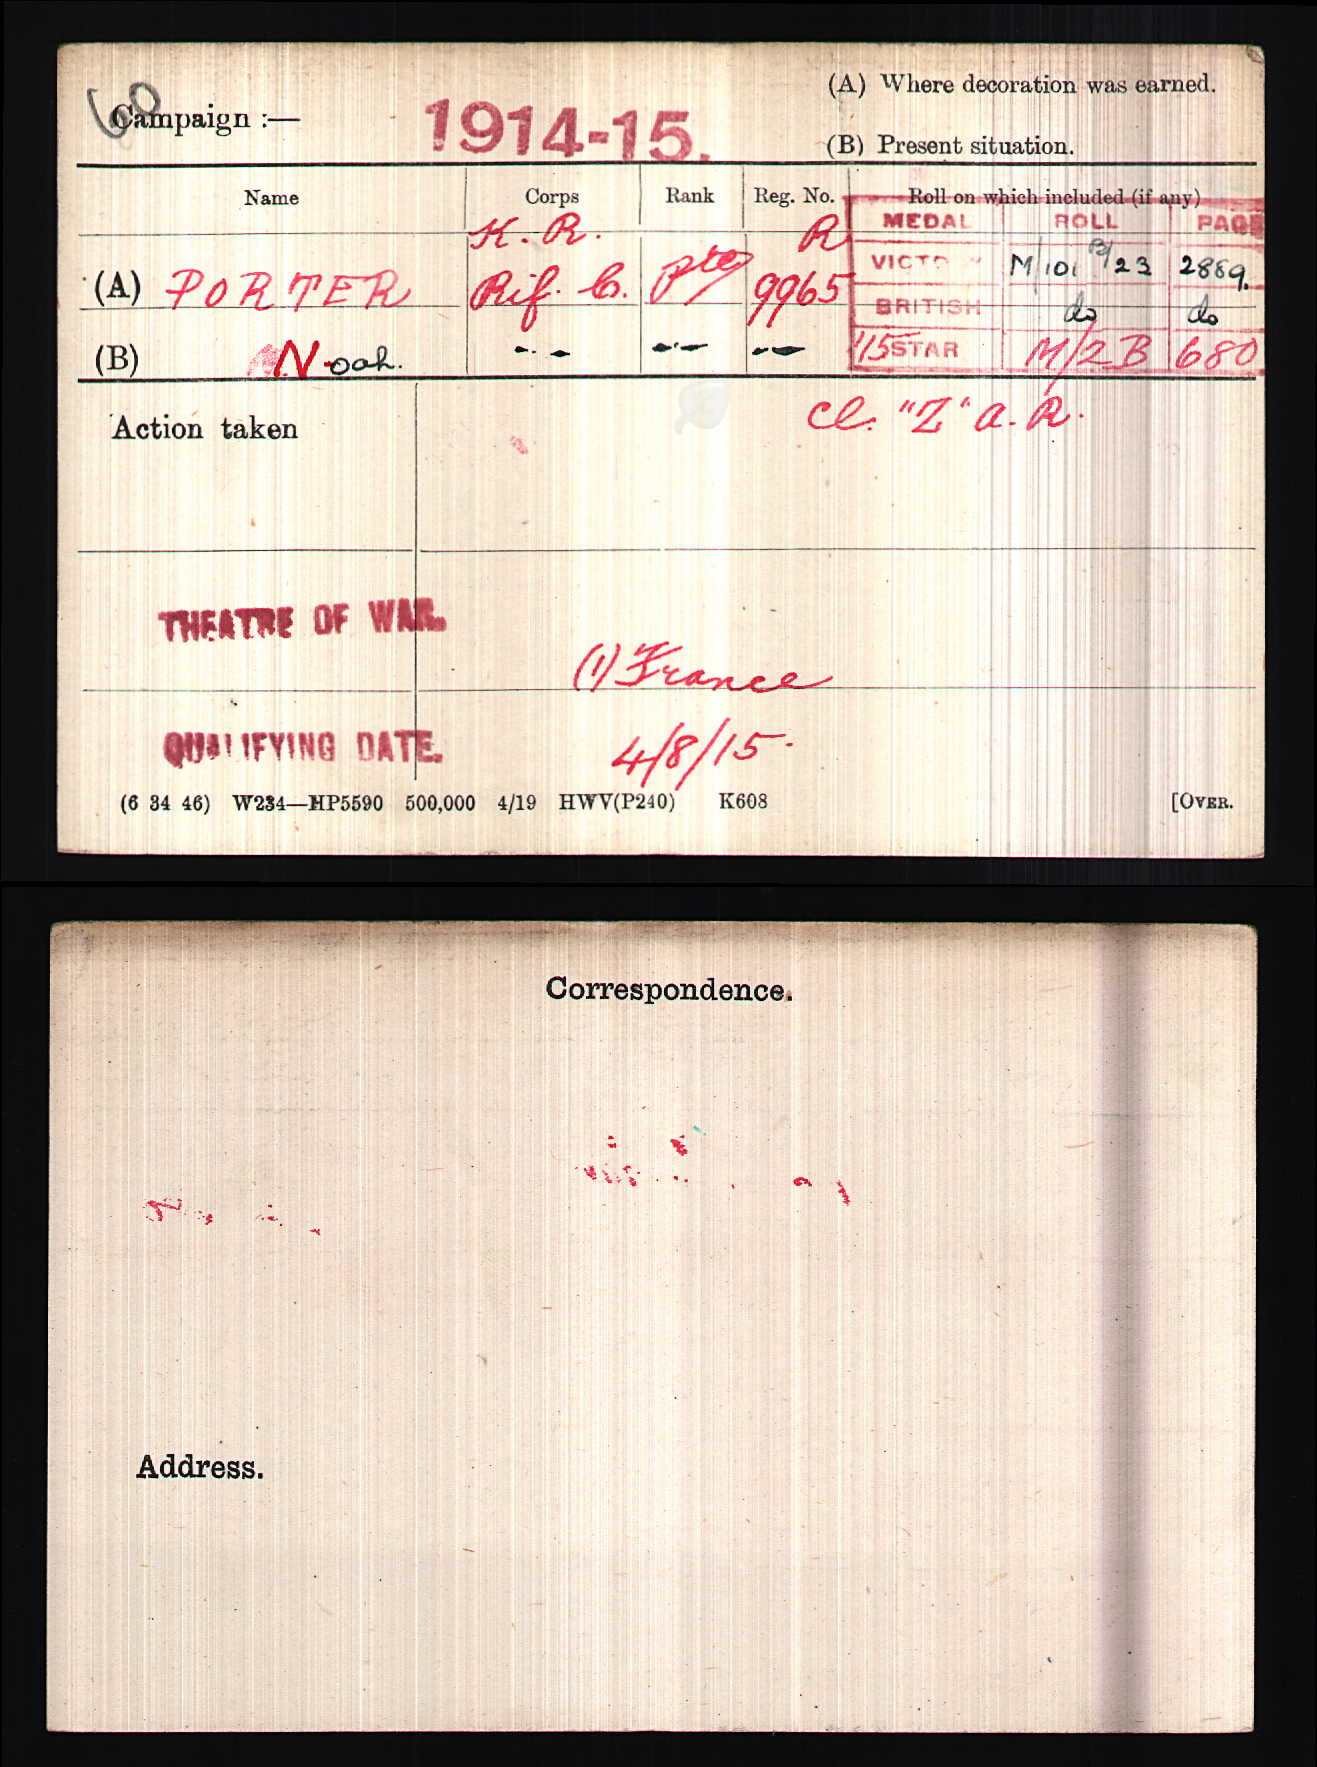 60
Campaign :— 1914-15.
(A) Where decoration was earned.
(B) Present situation.
Name Corps Rank Reg. No. Roll on which included (if any)
MEDAL ROLL PAGE
K. R. R
(A) PORTER Rif. C. Pte 9965
VICTORY M/101 B/23 2889.
BRITISH do do
(B) N oah. -- -- -- '15 STAR M/2B 680
Action taken
Cl. "Z" A. R.
THEATRE OF WAR.
(1) France
QUALIFYING DATE.
4/8/15.
(6 34 46) W234—HP5590 500,000 4/19 HWV(P240) K608 [OVER.
Correspondence.
Address.